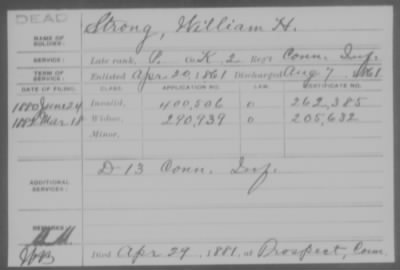 DEAD
NAME OF SOLDIER: Strong, William H.
SERVICE: Late rank, P. Co. K, 2 Reg't Conn. Inf.
TERM OF SERVICE: Enlisted Apr. 20, 1861 Discharged Aug 7, 1861
DATE OF FILING. CLASS. APPLICATION NO. LAW. CERTIFICATE NO.
1880 June 24 Invalid, 400,506 o 262,385
Mar 18 Widow, 290,939 o 205,632
Minor,
ADDITIONAL SERVICES: D 13 Conn. Inf.
REMARKS:
Died Apr 29, 1881, at Prospect, Conn